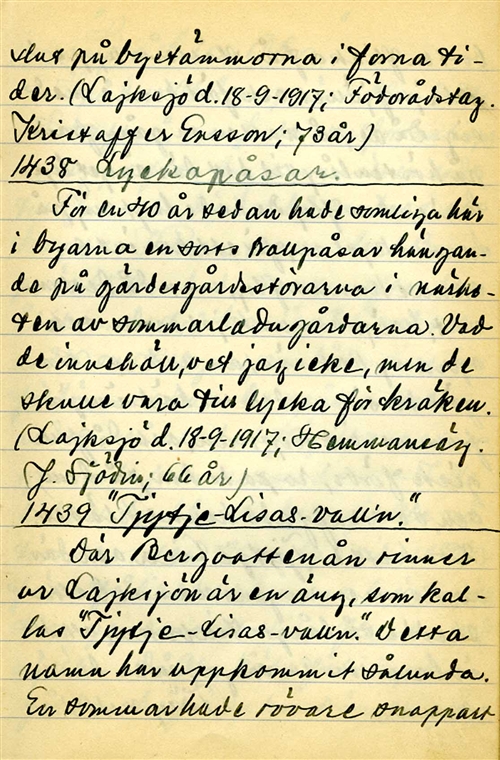 slut på byстämmorna i forna ti-
der. (Lajksjö d. 18-9-1917; Födorådstag.
Kristoffer Ersson; 73 år)
1438 Lyckapåsar.
För en 40 år sedan hade somliga här
i byarna en sorts trollpåsar hängan-
de på gärdesgårdsstörarna i närhe-
ten av sommarladugårdarna. Vad
de innehöll, vet jag icke, men de
skulle vara till lycka för kräken.
(Lajksjö d. 18-9-1917; Hemmansäg.
J. Sjödin; 66 år)
1439 "Tjytje-Lisas-vall'n."
Där Bergvattenån rinner
ur Lajksjön är en äng, som kal-
las "Tjytje-Lisas-vall'n." Detta
namn har uppkommit sålunda.
En sommar hade rövare snappat